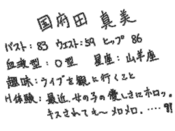 国府田 真美
バスト:83 ウエスト:59 ヒップ86
血液型:O型 星座:山羊座
趣味:ライブを観に行くこと
H体験:最近、女の子の優しさにホロッ。
キスされても〜メロメロ.....